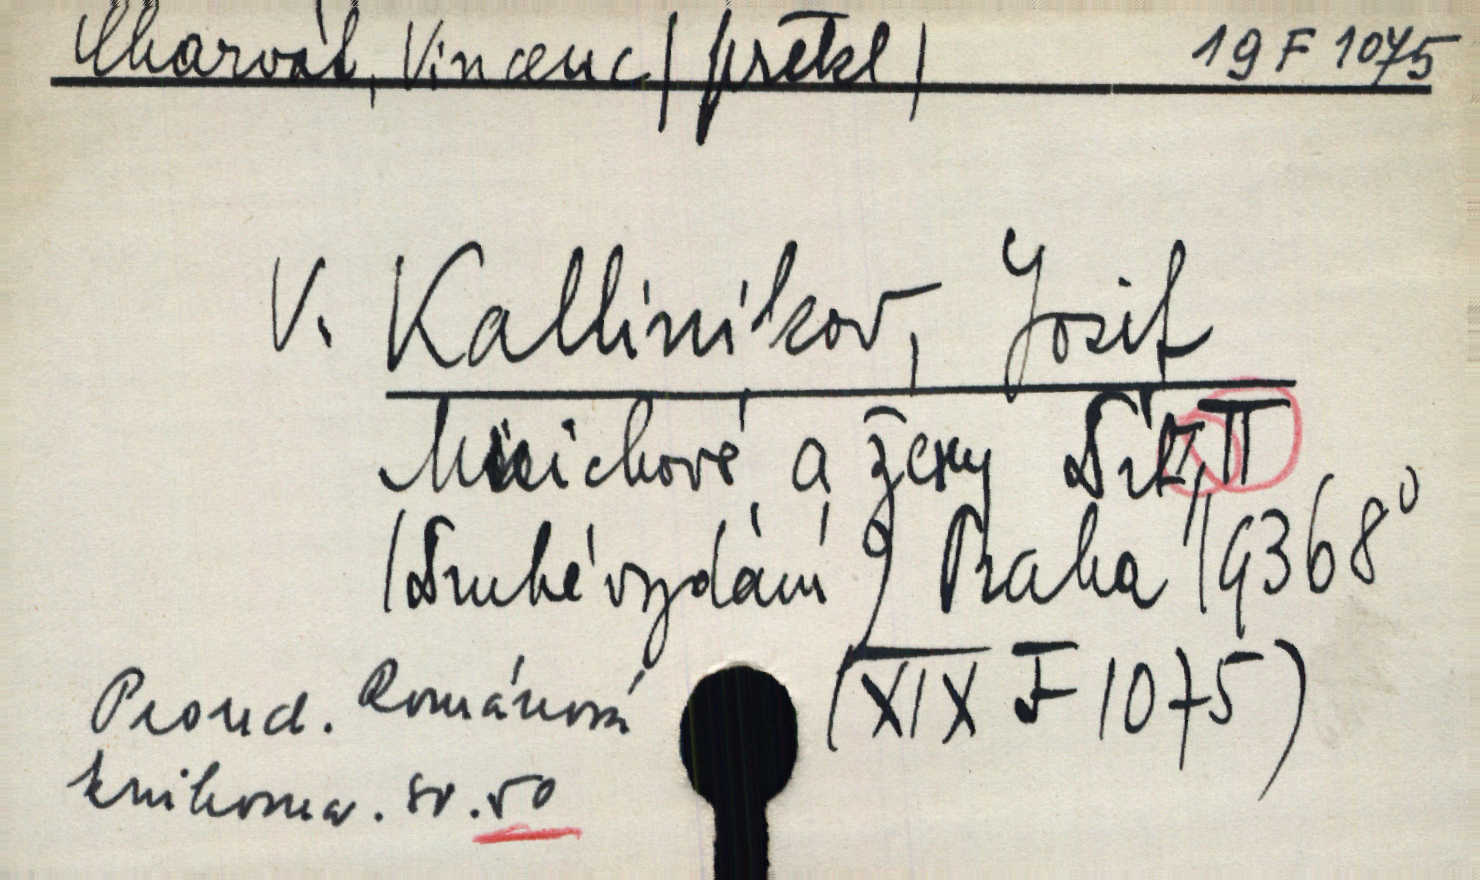 Charvát, Vincenc /překl/ 19 F 1075
V. Kallinikov, Josif
Mnichové a ženy Díl I, II
/Druhé vydání/ Praha 1936 8°
(XIX F 1075)
Proud. Románová
knihovna. sv. 50